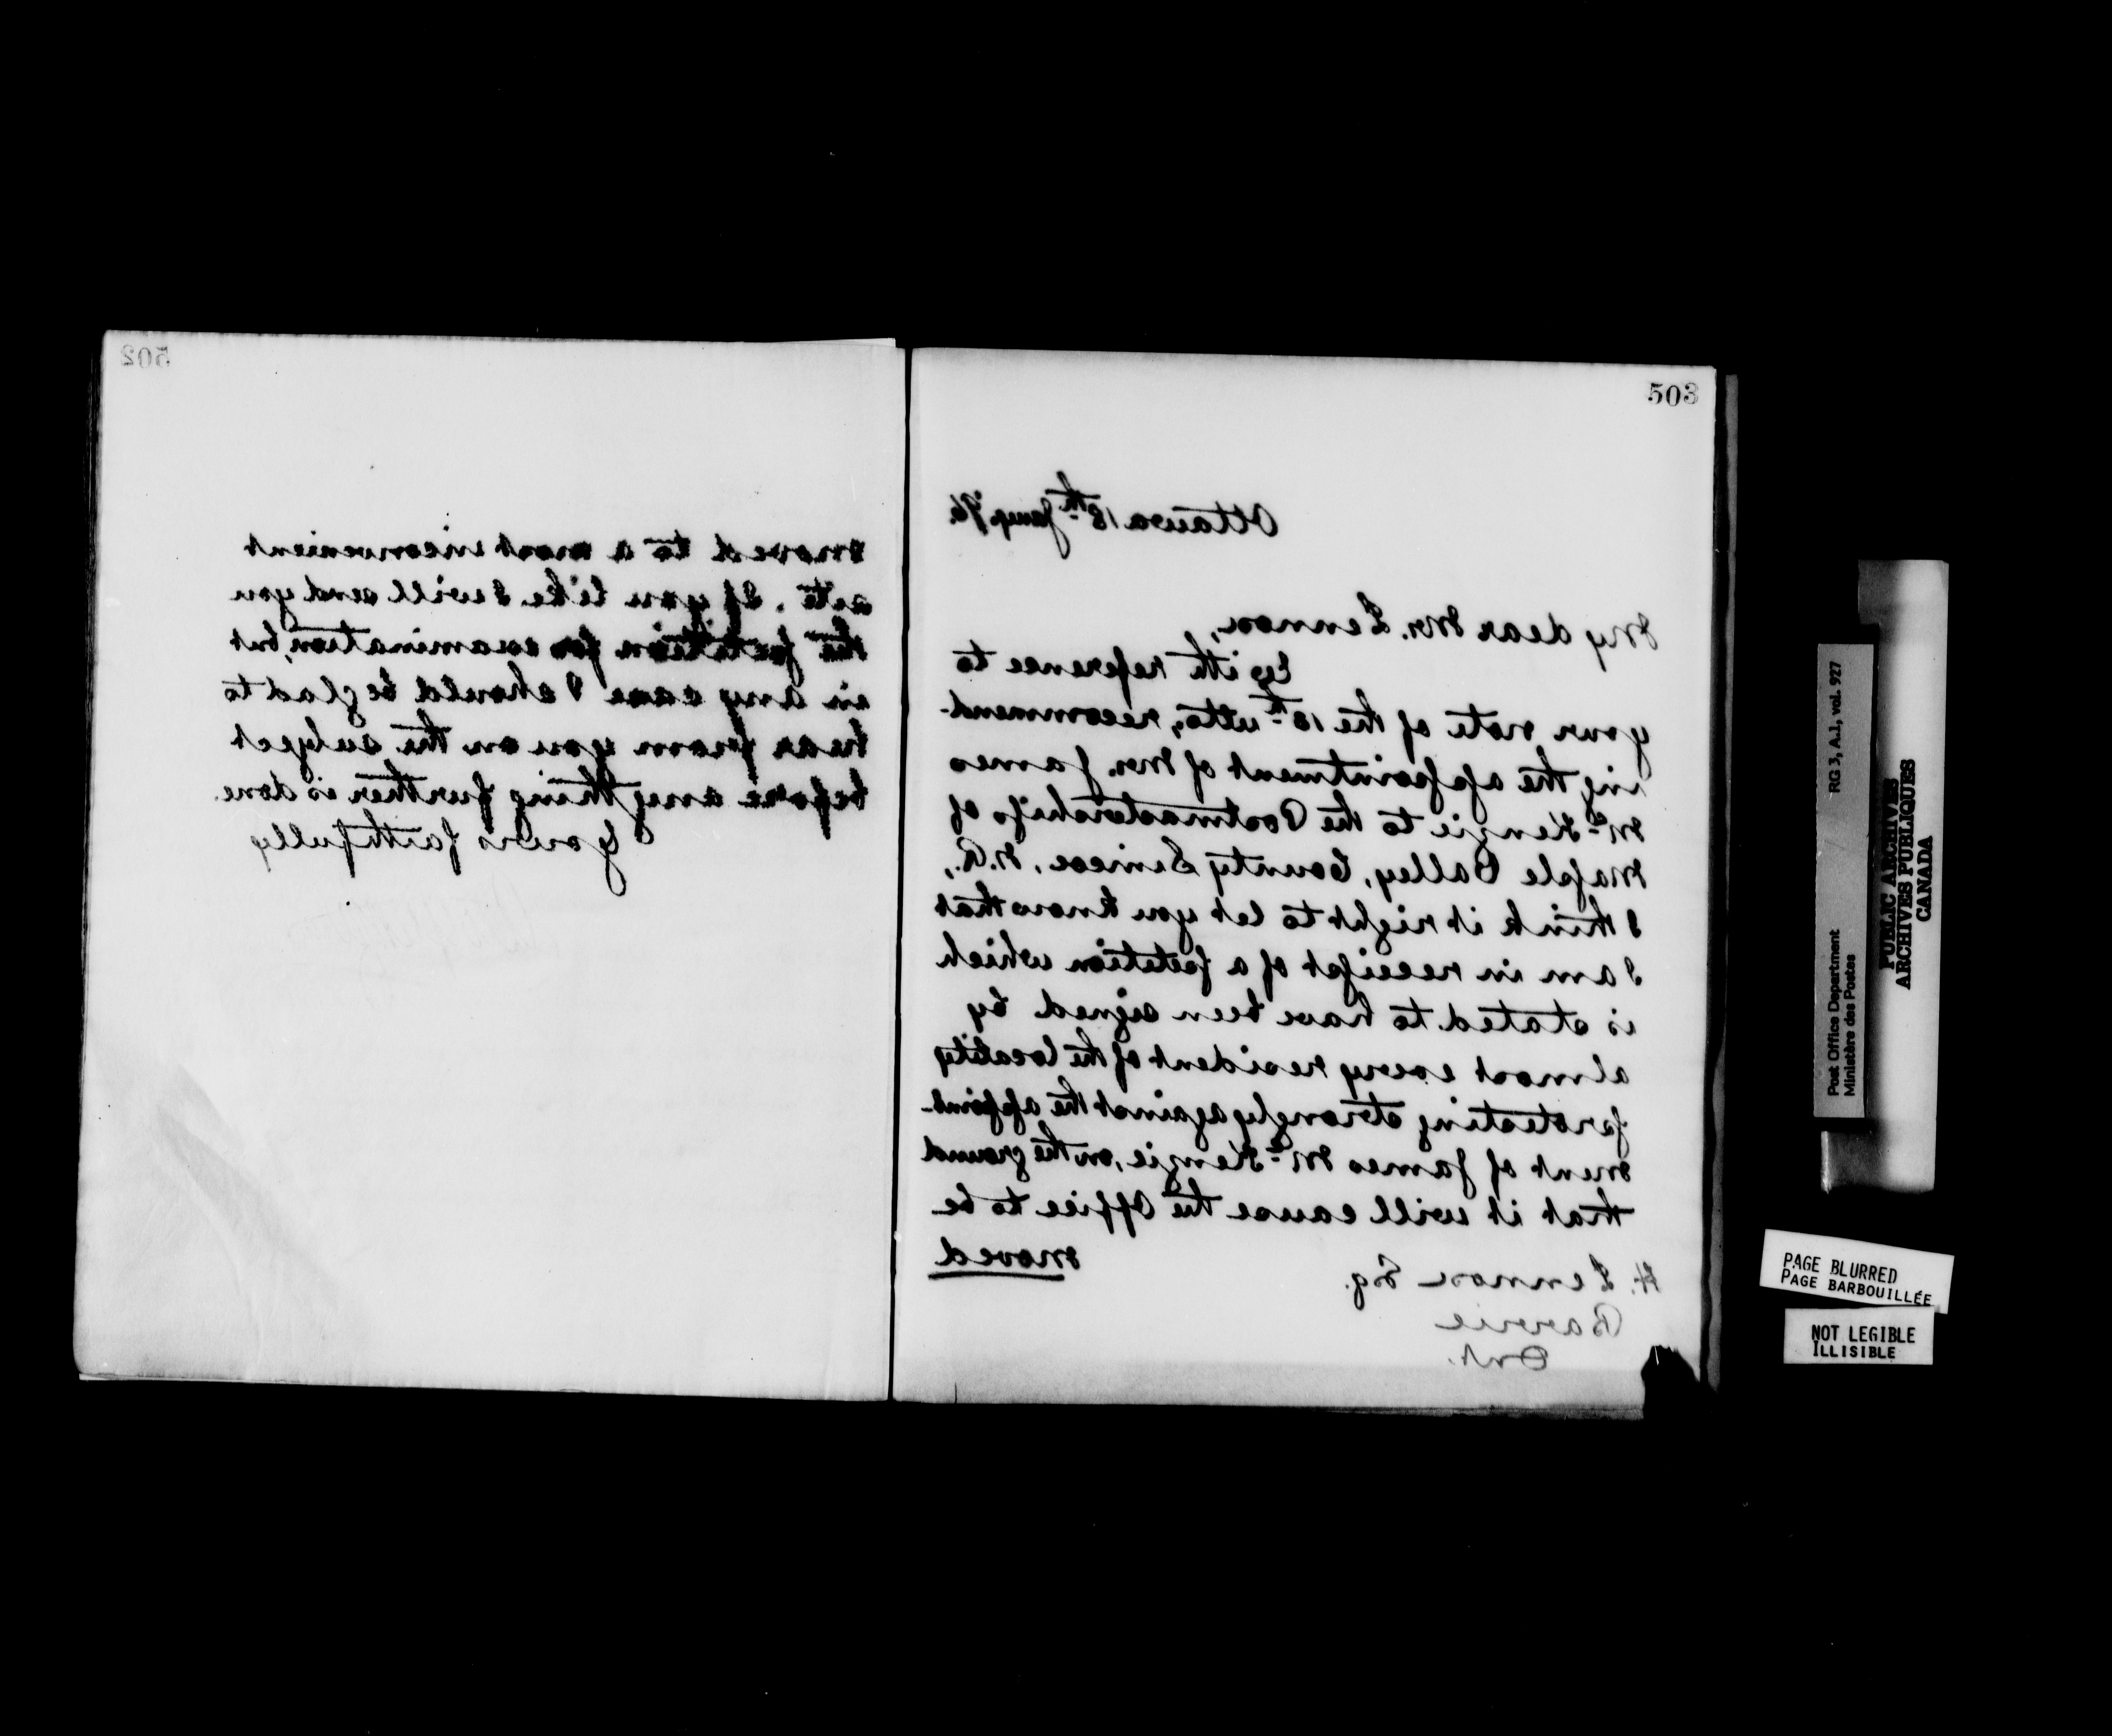 503
Ottawa 18th Jany. '96
My dear Mr. Lennox,
With reference to
your note of the 18th ulto, recommend-
ing the appointment of Mr. James
McKenzie to the Postmastership of
Maple Valley, County Simcoe, N.R.,
I think it right to let you know that
I am in receipt of a petition which
is stated to have been signed by
almost every resident of the locality
protesting strongly against the appoint-
ment of James McKenzie, on the ground
that it will cause the Office to be
moved
H. Lennox Esq.
Barrie
Ont.
502
moved to a most inconvenient
site. If you like I will send you
the petition for examination, but
in any case I should be glad to
hear from you on the subject
before anything further is done.
Yours faithfully
Post Office Department RG 3, A.1, vol. 927
Ministère des Postes
PUBLIC ARCHIVES
ARCHIVES PUBLIQUES
CANADA
PAGE BLURRED
PAGE BARBOUILLÉE
NOT LEGIBLE
ILLISIBLE